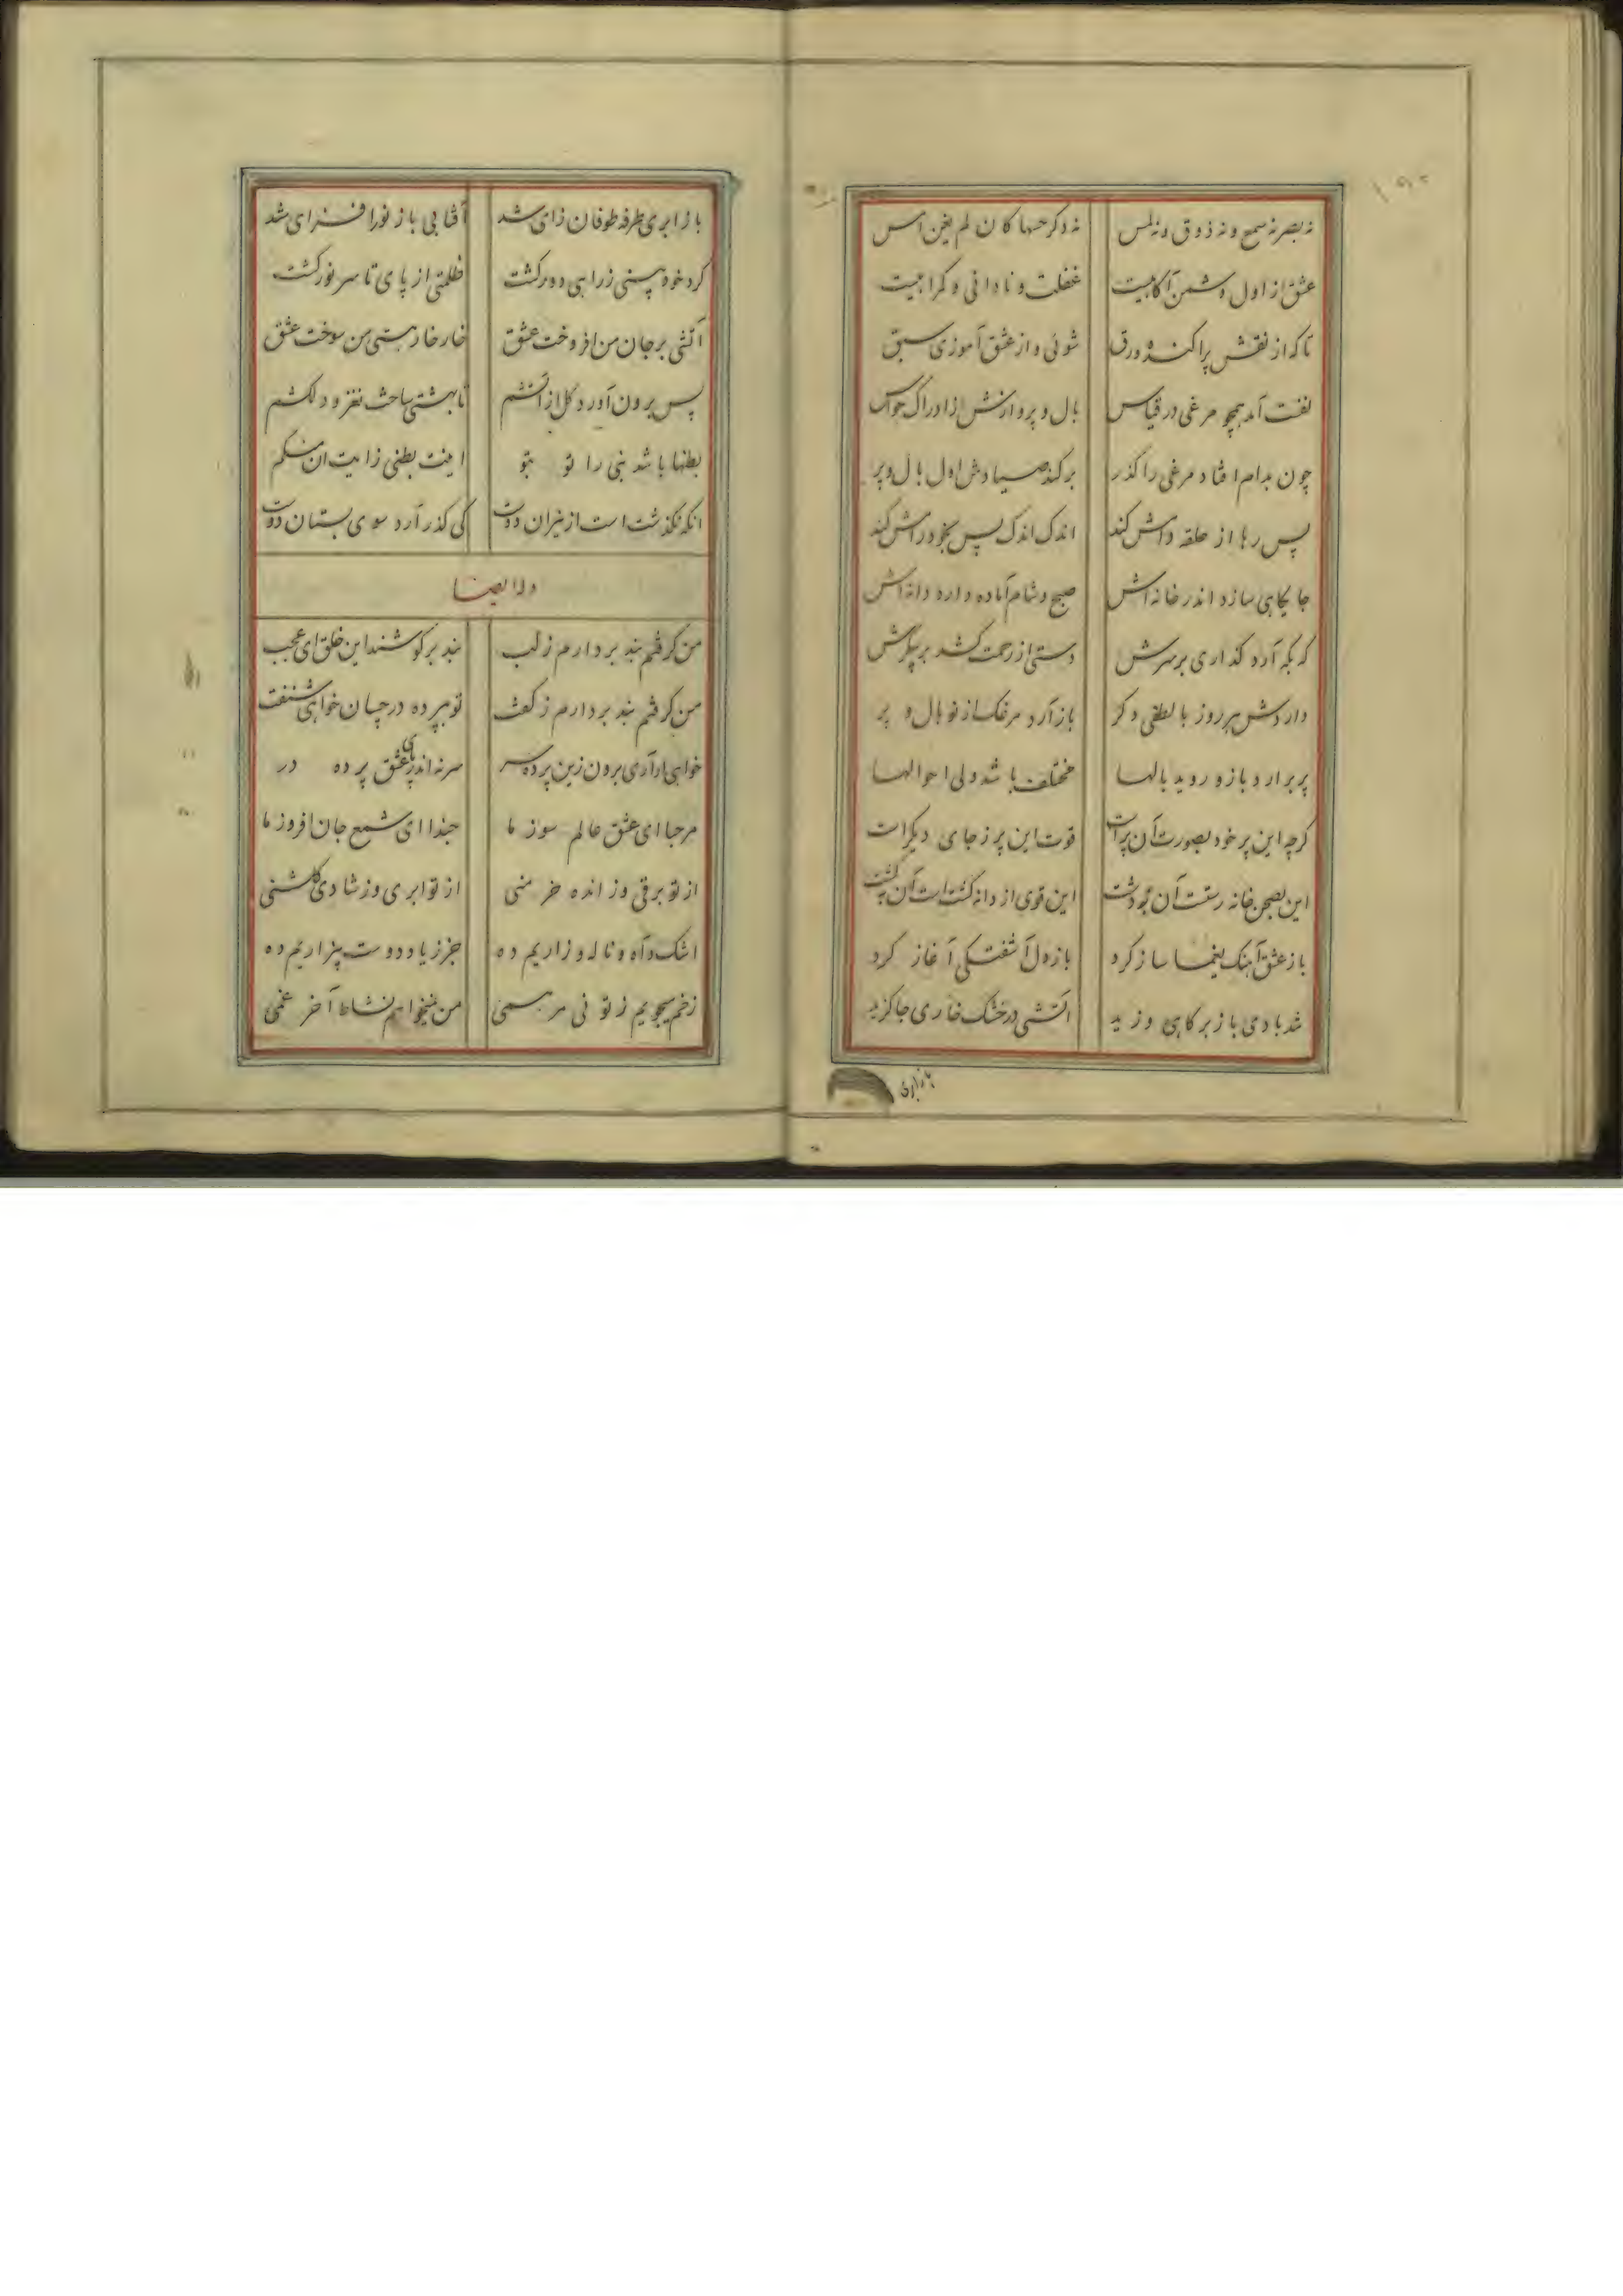 نه بصر نه سمع و نه ذوق و نه لمس نه دگر حسها کان لم یغن امس
عشق از اول دشمن آگاهیت غفلت و نادانی و گمراهیت
تا که از نقش پراکنده ورق شوئی و از عشق آموزی سبق
لفت آمد همچو مرغی در قیاس بال و پروازش از ادراک حواس
چون بدام افتاد مرغی را گذر برکند صیادش اول بال و پر
پس رها از حلقه دامش کند اندک اندک پس بخود رامش کند
جایگاهی سازد اندر خانه اش صبح و شام آماده دارد دانه اش
که بگه آرد گذاری بر سرش دستی از رحمت کشد بر پیکرش
داردش هر روز با لطفی دگر باز آرد مرغک از نو بال و پر
پر برارد باز و روید بالها مختلف باشد ولی احوالها
گرچه این پر خود بصورت آن پر است قوت این پر ز جای دیگر است
این بصحن خانه رست آن بدشت این قوی از دانه گشت است آن ز کشت
باز عشق آهنگ یغما ساز کرد باز دل آشفتگی آغاز کرد
شد بادی باز بر کاهی وزید آتشی در خشک خاری جا گزید
باز ابری
باز ابری طرفه طوفان زای شد آفتابی باز نور افزای شد
گرد خود بینی ز راهی دور گشت ظلمتی از پای تا سر نور گشت
آتشی بر جان من افروخت عشق خار خار هستی من سوخت عشق
پس برون آورد گل از آتشم تا بهشتی ساخت نغز و دلکشم
بطنها باشد نبی را تو بتو اینت بطنی زابیت ان
انکه نگذشت است از نیران دوست کی گذر آرد سوی بستان دوست
وله ایضا
من گرفتم بند بردارم ز لب بند بر گوشند این خلق ای عجب
من گرفتم بند بردارم ز گفت تو بپرده در چسان خواهی شنفت
خواهی ار آری برون زین پرده سر سر نه اندر پای عشق پرده در
مرحبا ای عشق عالم سوز ما حبذا ای شمع جان افروز ما
از تو برقی وز انده خرمنی از تو ابری وز شادی گلشنی
اشک و آه و ناله و زاریم ده جز ز یاد دوست بیزاریم ده
زخم میجویم ز تو نی مرهمی من نمیخواهم نشاط آخر غمی